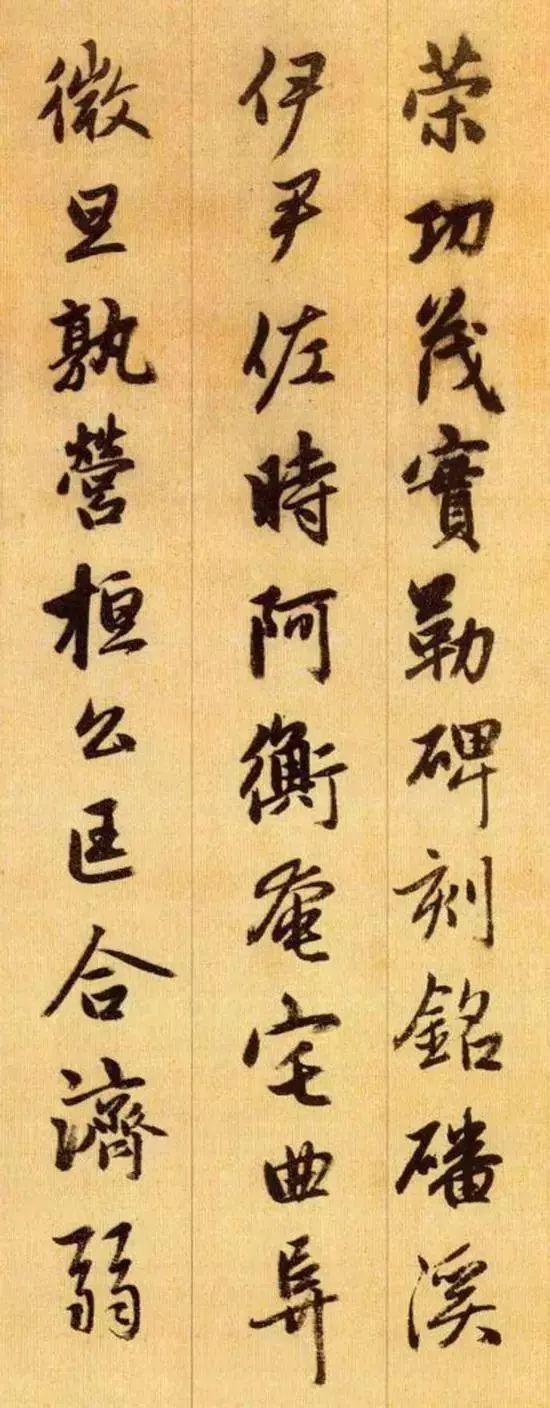 荣功茂實勒碑刻銘磻溪
伊尹佐時阿衡奄宅曲阜
微旦孰營桓公匡合濟弱